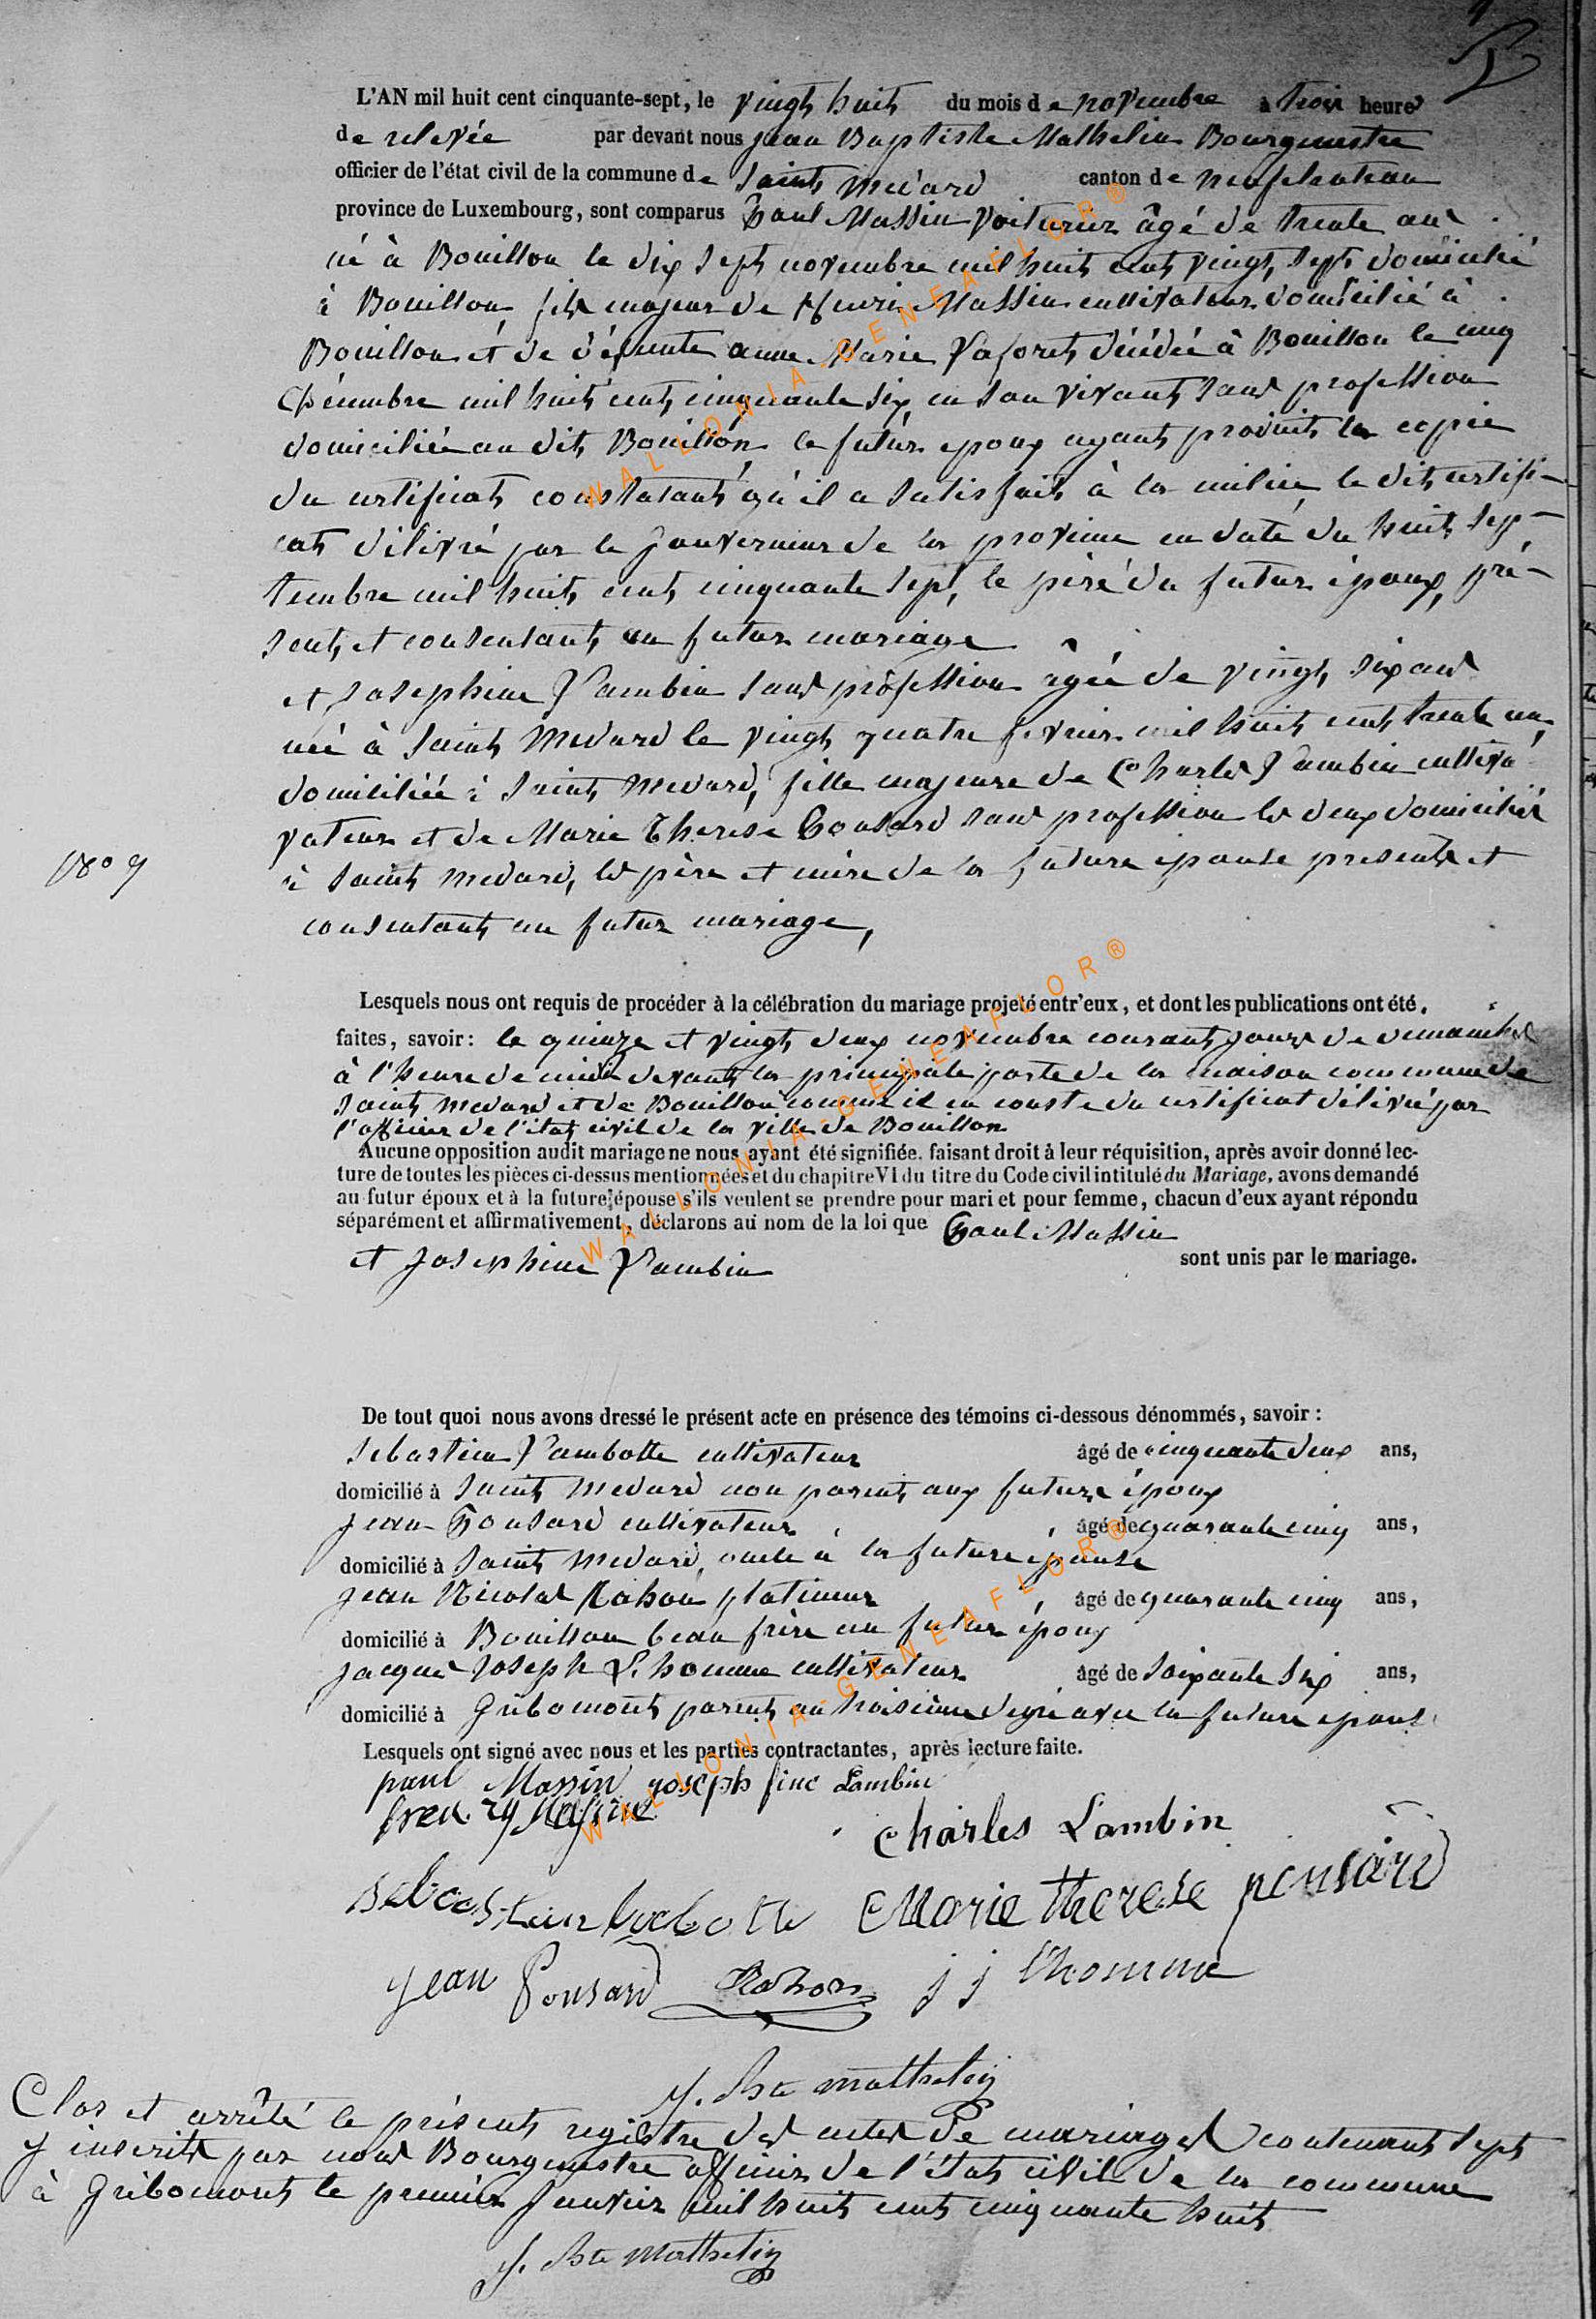 L'AN mil huit cent cinquante-sept, le vingt huit du mois de novembre à trois heures
de relevée par devant nous jean Baptiste Mathelin Bourgmestre
officier de l'état civil de la commune de Saint Médard canton de neufchateau
province de Luxembourg, sont comparus Paul Massin voiturier âgé de trente ans
né à Bouillon le dix sept novembre mil huit cent vingt sept domicilié
à Bouillon fils majeur de Henri Massin cultivateur domicilié à
Bouillon et de défunte anne Marie Laforet décédée à Bouillon le cinq
Décembre mil huit cent cinquante six, en son vivant sans profession
domiciliée au dit Bouillon le futur epoux ayant produit la copie
du certificat constatant qu'il a satisfait à la milice le dit certifi-
cat délivré par le gouverneur de la province en date du huit sep-
tembre mil huit cent cinquante sept, le père du futur époux, pré-
sent et consentant au futur mariage
et Josephine Lambin sans profession âgée de vingt six ans
née à Saint Medard le vingt quatre fevrier mil huit cent trente un,
domiciliée à Saint Medard, fille majeure de Charles Lambin cultiva
vateur et de Marie Therèse Ponsard sans profession les deux domiciliés
N° 7
à Saint Medard, les père et mère de la future épouse presents et
consentant au futur mariage,
Lesquels nous ont requis de procéder à la célébration du mariage projeté entr'eux, et dont les publications ont été
faites, savoir: le quinze et vingt deux novembre courant jours de dimanches
à l'heure de midi devant la principale porte de la maison commune de
Saint Medard et de Bouillon comme il en conste du certificat délivré par
l'officier de l'état civil de la ville de Bouillon
Aucune opposition audit mariage ne nous ayant été signifiée. faisant droit à leur réquisition, après avoir donné lec-
ture de toutes les pièces ci-dessus mentionnées et du chapitre VI du titre du Code civil intitulé du Mariage, avons demandé
au futur époux et à la future épouse s'ils veulent se prendre pour mari et pour femme, chacun d'eux ayant répondu
séparément et affirmativement, déclarons au nom de la loi que Paul Massin
et Josephine Lambin sont unis par le mariage.
De tout quoi nous avons dressé le présent acte en présence des témoins ci-dessous dénommés, savoir:
Sebastien Lambotte cultivateur âgé de cinquante deux ans,
domicilié à Saint Medard non parent aux futurs époux
jean Ponsard cultivateur âgé de quarante cinq ans,
domicilié à Saint Medard, oncle à la future épouse
jean Nicolas Rahon platineur âgé de quarante cinq ans,
domicilié à Bouillon beau frère au futur époux
jacques Joseph Lhomme cultivateur âgé de soixante six ans,
domicilié à Gribomont parent au troisième degré avec la future epouse
Lesquels ont signé avec nous et les parties contractantes, après lecture faite.
paul Massin joseph fine Lambin
Charles Lambin
Marie therese ponsard
jean Ponsard Rahon j j lhomme
J. Bte Mathelin
Clos et arrêté le présent registre des actes de mariages contenant sept
y inscrits par nous Bourgmestre officier de l'état civil de la commune
à Gribomont le premier Janvier mil huit cent cinquante huit
J. Bte Mathelin
WALLONIA-GENEAFLOR®
WALLONIA-GENEAFLOR®
WALLONIA-GENEAFLOR®